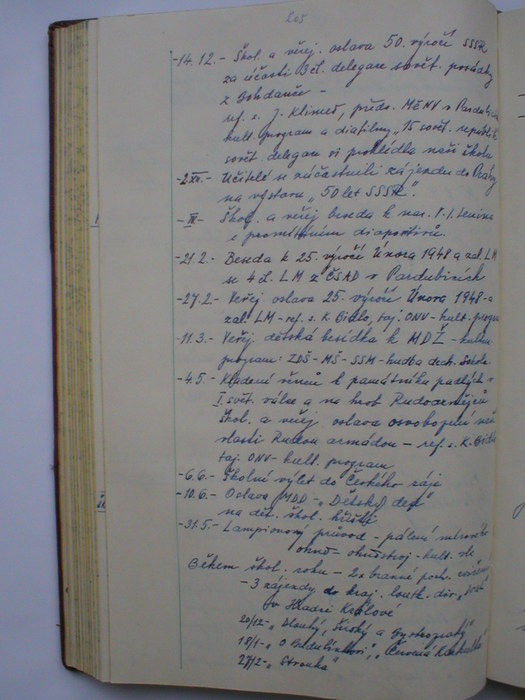 205
-14.12.- Škol. a veřej. oslava 50. výročí SSSR
za účasti 3čl. delegace sovět. posádky
z Bohdanče -
ref. s. J. Klimeš, předs. MěNV v Pardub.
kult. program a diafilmy "15 sovět. republik"
sovět. delegace si prohlédla naši školu
-2.XII.- Učitelé se zúčastnili zájezdu do Prahy
na výstavu "50 let SSSR".
Škol. a veřej beseda k nar. V.I. Lenina
s promítáním diapozitivů
-21.2.- Beseda k 25. výročí Února 1948 a zal. LM
se 4 čl. LM z ČSAD v Pardubicích
-27.2- Veřej. oslava 25. výročí Února 1948 a
zal. LM - ref. s. K. Bidlo, taj. ONV - kult. program
-11.3.- Veřej. dětská besídka k MDŽ - kultur.
program: ZDŠ - MŠ - SSM - hudba dech.
-4.5.- Kladení věnců k památníku padlých v
I. svět. válce a na hrob Rudoarmějců
Škol. a veřej oslava osvobození naší
vlasti Rudou armádou - ref. s. K. Bidlo
taj. ONV - kult. program
-6.6.- Školní výlet do Českého ráje
-10.6.- Oslava MDD - "Dětský den"
na dět. škol. hřišti
-31.5.- Lampionový průvod - pálení mírového
ohně - ohňostroj - kult. vl.
Během škol. roku - 2x branné poh. cvičení
- 3 zájezdy do kraj. loutk. div. "Drak"
v Hradci Králové
20/12 - "Dlouhý, Široký a Bystrozraký"
18/1 - "O Budulínkovi", "Červená Karkulka"
27/2 -